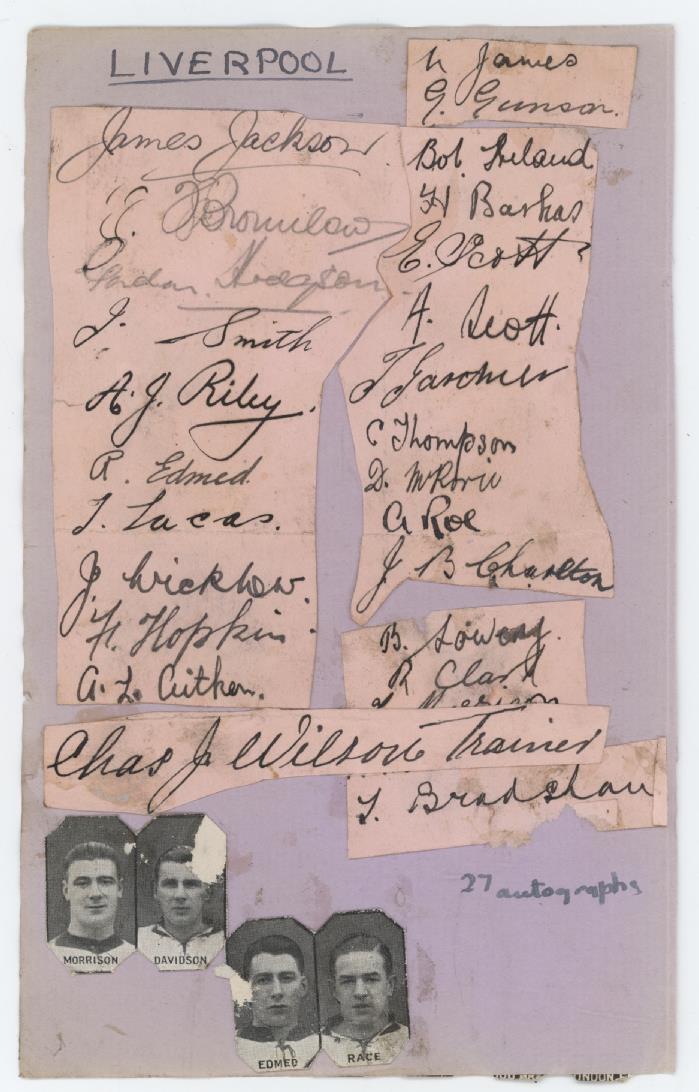 LIVERPOOL
N James
G. Gunson.
James Jackson.
T Bromilow
Gordon Hodgson
J. Smith
A. J. Riley.
R. Edmed
T. Lucas.
J. Wicklow.
F. Hopkin.
A. L. Aitken.
Bob. Ireland
H Barkas
E. Scott
A. Scott.
T Gardner
C Thompson
D. McRorie
A Roe
J B Charlton
B.
R Clark
T Morrison
Chas J Wilson Trainer
T. Bradshaw
27 autographs
MORRISON
DAVIDSON
EDMED
RACE